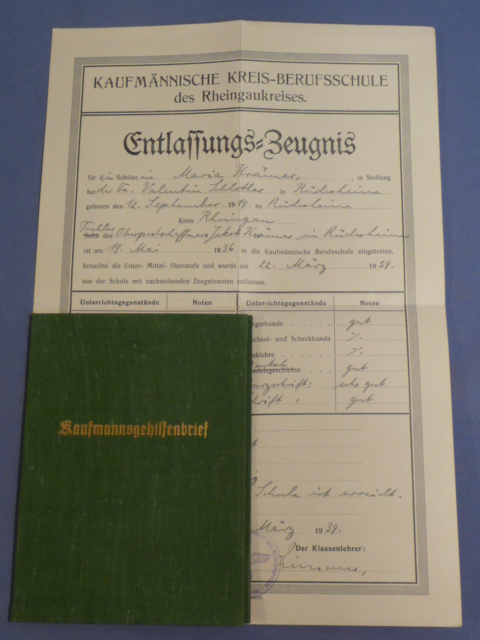 KAUFMÄNNISCHE KREIS-BERUFSSCHULE
des Rheingaukreises.
Entlassungs-Zeugnis
für die Schülerin Maria Krämer, in Stellung
bei der Fa. Valentin Schlotter in Rüdesheim
geboren den 12. September 1919 zu Rüdesheim
Kreis Rheingau
Tochter
Sohn des Jakob Krämer in Rüdesheim
ist am 19. Mai 1936 in die Kaufmännische Berufsschule eingetreten,
besuchte die Unter- Mittel- Oberstufe und wurde am 22. März 1939.
aus der Schule mit nachstehenden Zeugnisnoten entlassen.
Unterrichtsgegenstände Noten Unterrichtsgegenstände Noten
gerkunde gut
chsel- und Scheckkunde %.
nklehre %.
Deutsch
ndelsgeschichte gut
sehr gut
hrift: gut
Schule ist erreicht.
März 1939.
Der Klassenlehrer:
Kaufmannsgehilfenbrief